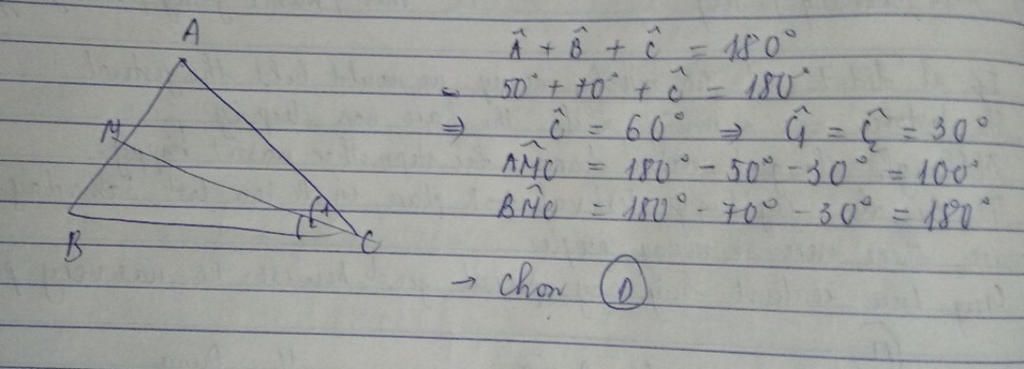 A
M
B
C
1
2
Â + B̂ + Ĉ = 180°
50° + 70° + Ĉ = 180°
⇒ Ĉ = 60° ⇒ Ĉ1 = Ĉ2 = 30°
AM̂C = 180° - 50° - 30° = 100°
BM̂C = 180° - 70° - 30° = 180°
→ Chọn D